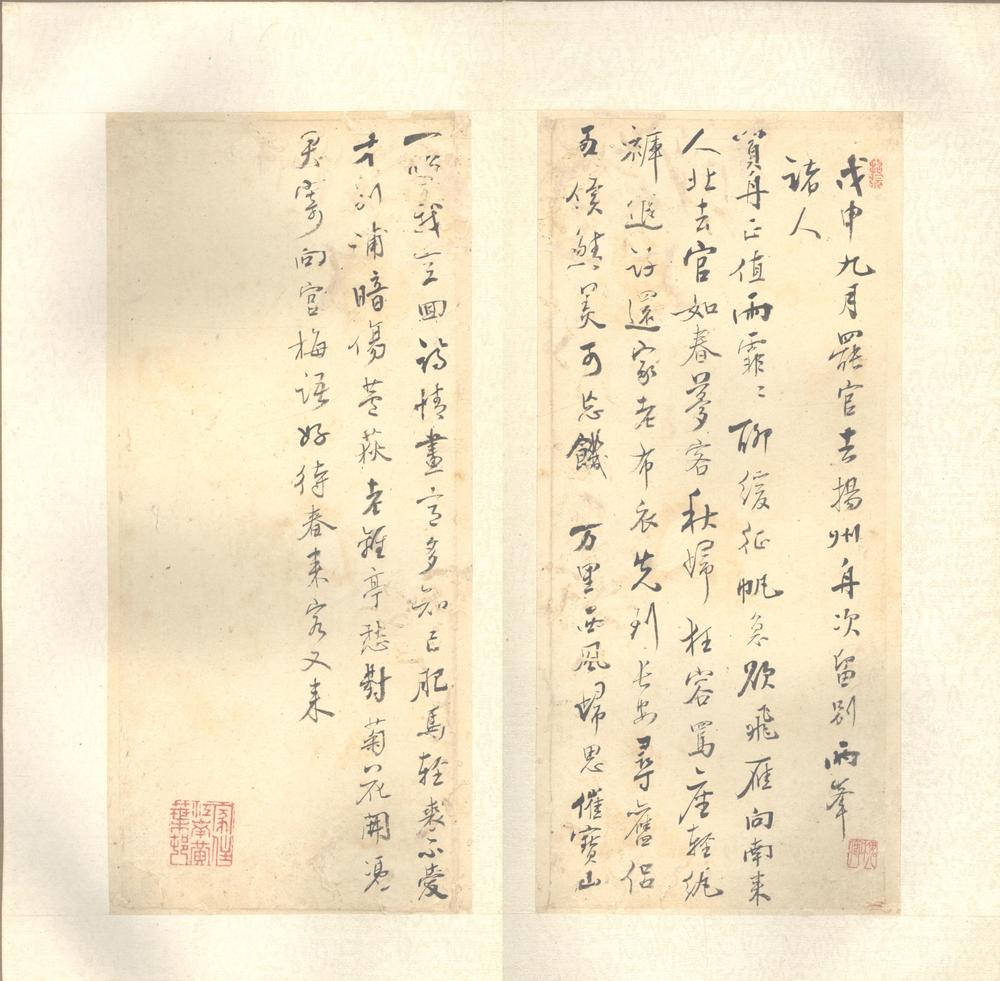 戊申九月罷官去揚州舟次留別兩峯
諸人
買舟正值雨霏〻聊緩征帆急欲飛雁向南來
人北去官如春夢客秋歸狂容罵座輕紈
褲遊許還家老布衣先到長安尋舊侶
五侯鯖美可忘饑 万里西風歸思催寶山
一我空回詩情畫意多知己肥馬輕裘不愛
才別浦暗傷荻老離亭愁對菊花開憑
君寄向官梅語好待春來客又來
家住江南黃葉邨